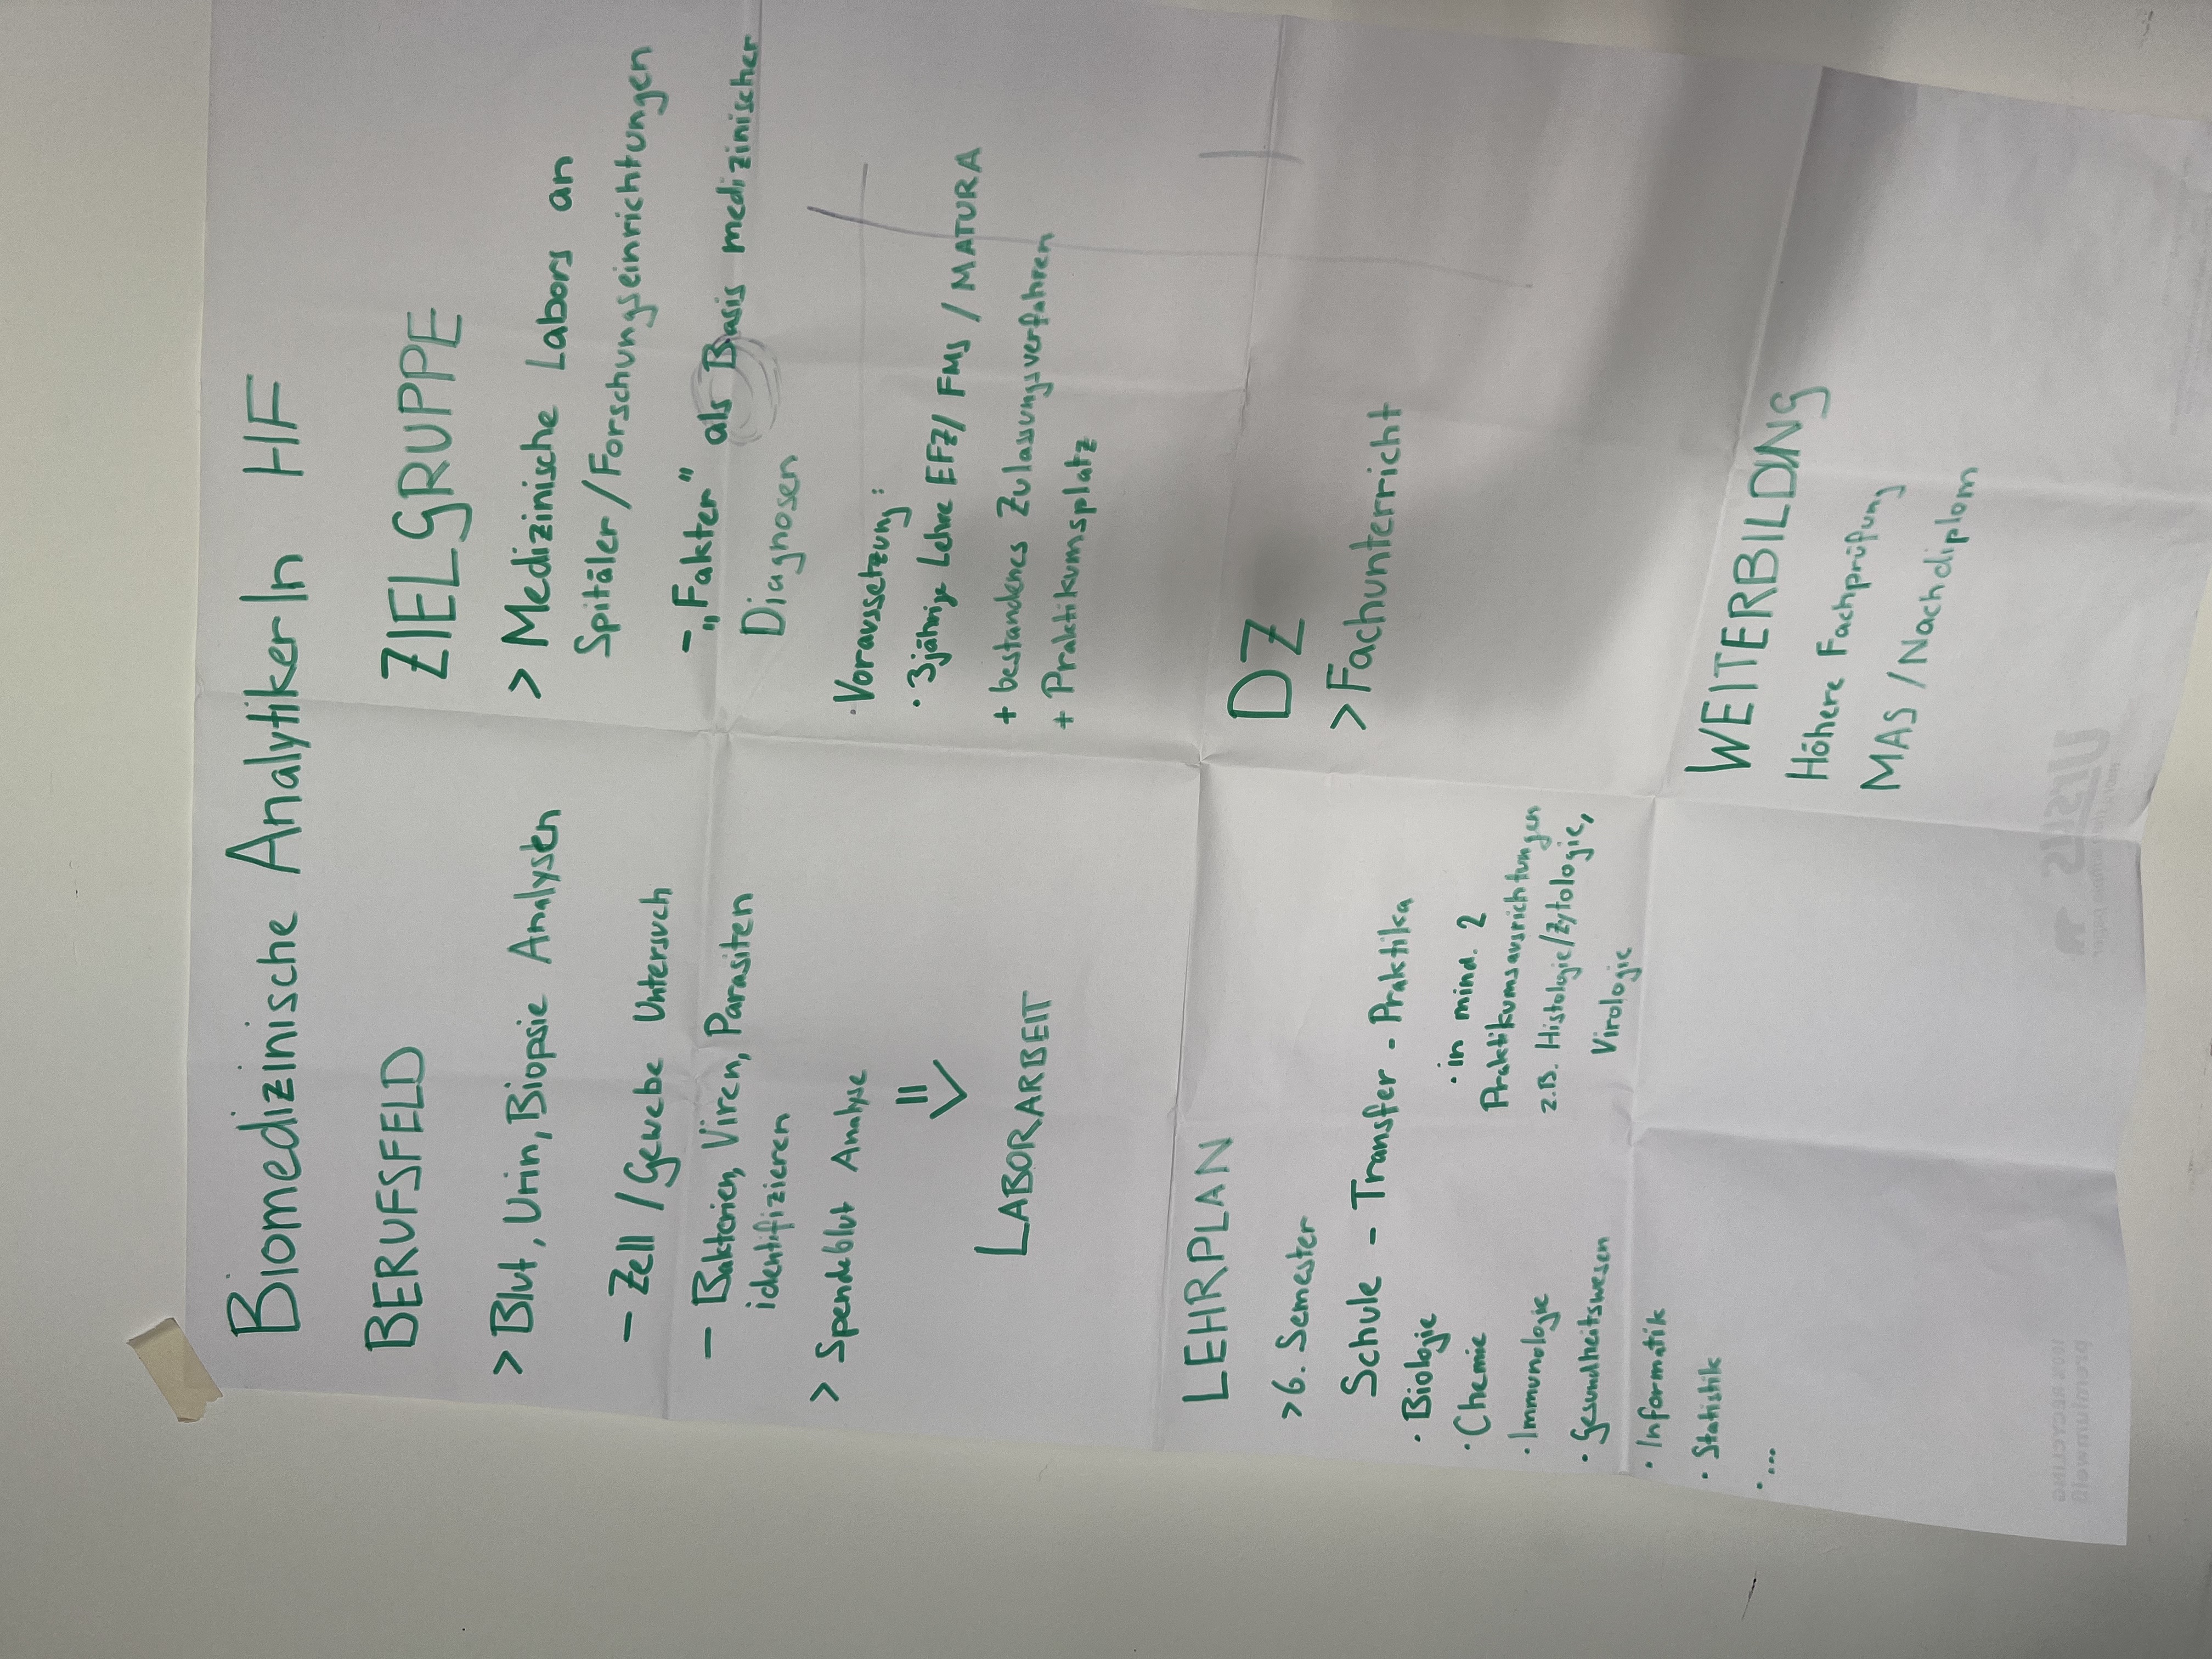 Biomedizinische AnalytikerIn HF
BERUFSFELD
> Blut, Urin, Biopsie Analysen
– Zell / Gewebe Untersuch
– Bakterien, Viren, Parasiten
identifizieren
> Spendeblut Analyse
=>
LABORARBEIT
ZIELGRUPPE
> Medizinische Labors an
Spitäler / Forschungseinrichtungen
– „Fakter" als Basis medizinischer
Diagnosen
· Voraussetzung:
· 3jährige Lehre EFZ / FMS / MATURA
+ bestandenes Zulassungsverfahren
+ Praktikumsplatz
LEHRPLAN
> 6. Semester
Schule – Transfer – Praktika
· Biologie
· Chemie
· Immunologie
· Gesundheitswesen
· Informatik
· Statistik
· ...
· in mind. 2
Praktikumsausrichtungen
z.B. Histologie/Zytologie,
Virologie
DZ
> Fachunterricht
WEITERBILDUNG
Höhere Fachprüfung
MAS / Nachdiplom